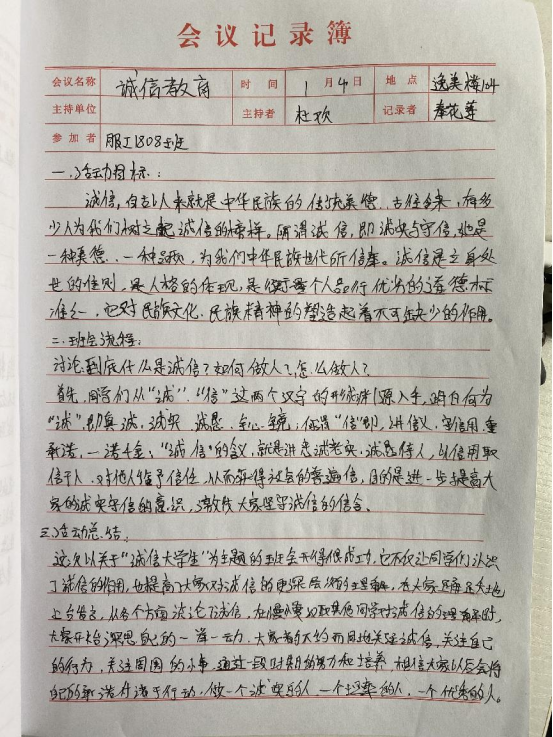 会议记录簿
会议名称 诚信教育 时间 1月4日 地点 逸美楼104
主持单位 主持者 杜欢 记录者 秦花莲
参加者 服工1808班
一、活动目标：
诚信，自古以来就是中华民族的传统美德，古往今来，有多
少人为我们树立起诚信的榜样。所谓诚信，即诚实与守信，她是
一种美德，一种品质，为我们中华民族世代所信奉。诚信是立身处
世的准则，是人格的体现，是衡量每个人品行优劣的道德标
准之一，它对民族文化、民族精神的塑造起着不可缺少的作用。
二、班会流程：
讨论到底什么是诚信？如何做人？怎么做人？
首先，同学们从“诚”“信”这两个汉字的形成来源入手，明白何为
“诚”，即真诚，诚实，诚恳，“信”即，讲信义，守信用，重
承诺，一诺千金；“诚信”的含义，就是讲忠诚老实，诚恳待人，以信用取
信于人，对他人给予信任，从而获得社会的普遍信，目的是进一步提高大
家的诚实守信的意识，激发大家坚守诚信的信念。
三、活动总结：
这次以关于“诚信大学生”为主题的班会开得很成功，它不仅让同学们认识
了诚信的作用，也提高了大家对诚信的更深层次的理解，在大家
上台发言，从各个方面谈论了诚信，同学对诚信的理解时，
大家开始深思自己的一举一动，大家关注诚信，关注自己
的行为，关注周围的小事，通过一段时期的努力和培养，相信大家以后会将
自己的承诺付诸于行动，做一个诚实的人，一个坦率的人，一个优秀的人。